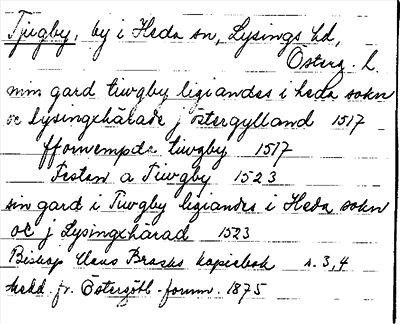 Tjugby, by i Heda sn, Lysings hd,
Österg. l.
min gard tiwgby ligiandes i heda sokn
oc lysingxhärade j östergylland 1517
ffornempde tiwgby 1517
Festen a Tiwgby 1523
sin gard i Tiwgby ligiandes i Heda sokn
oc j Lysingxhärad 1523
Biskop Hans Brasks kopiebok s. 3, 4
medd. fr. Östergötl. fornm. 1875